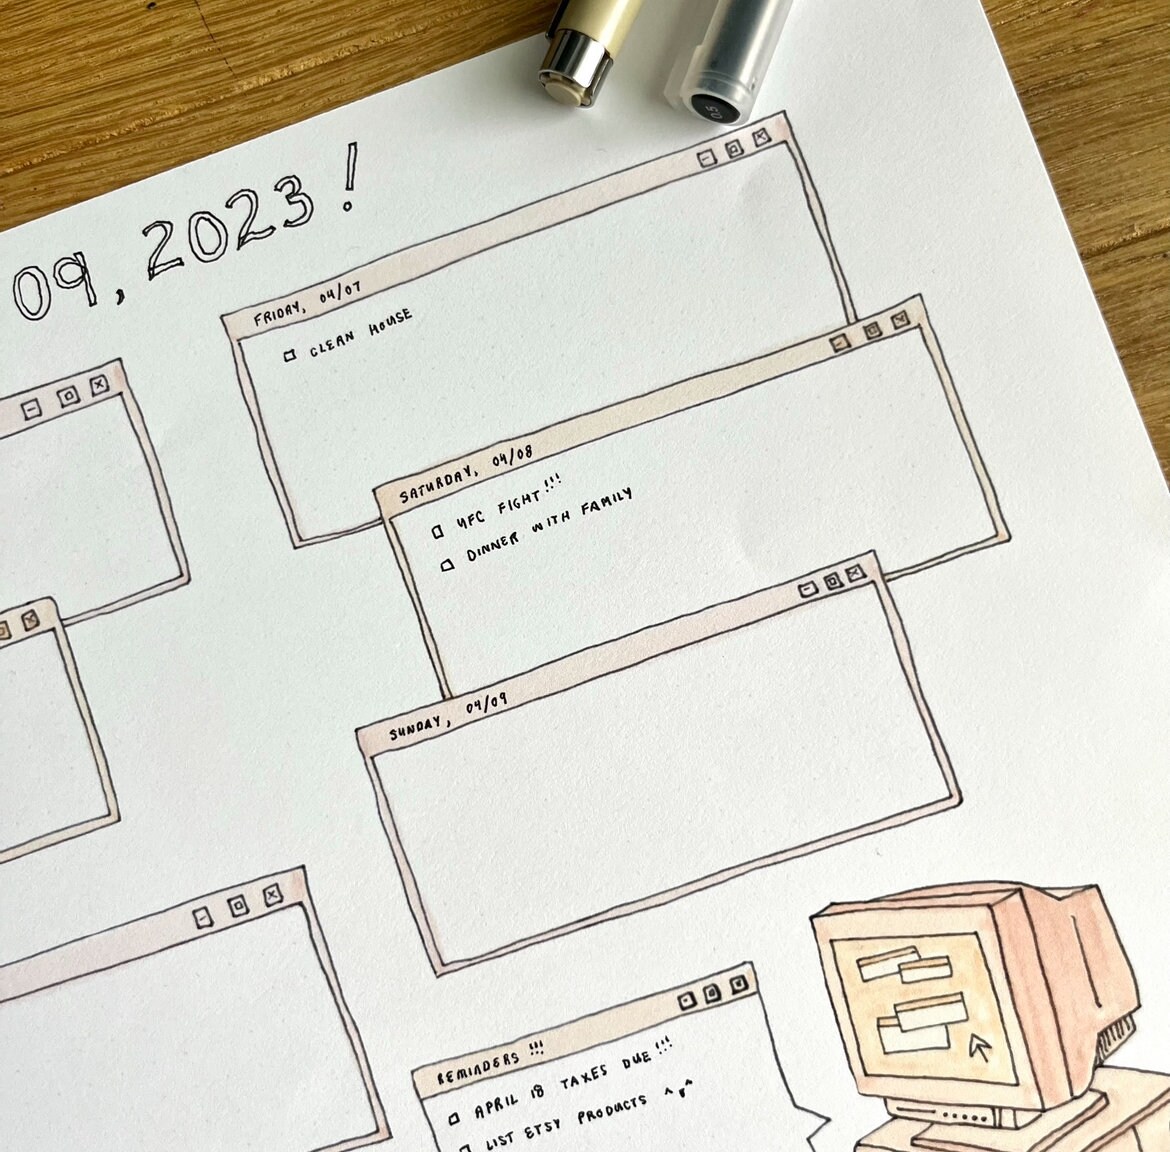 09, 2023!
FRIDAY, 04/07
CLEAN HOUSE
SATURDAY, 04/08
UFC FIGHT!!!
DINNER WITH FAMILY
SUNDAY, 04/09
REMINDERS !!!
APRIL 18 TAXES DUE!!!
LIST ETSY PRODUCTS ^▾^
0.5